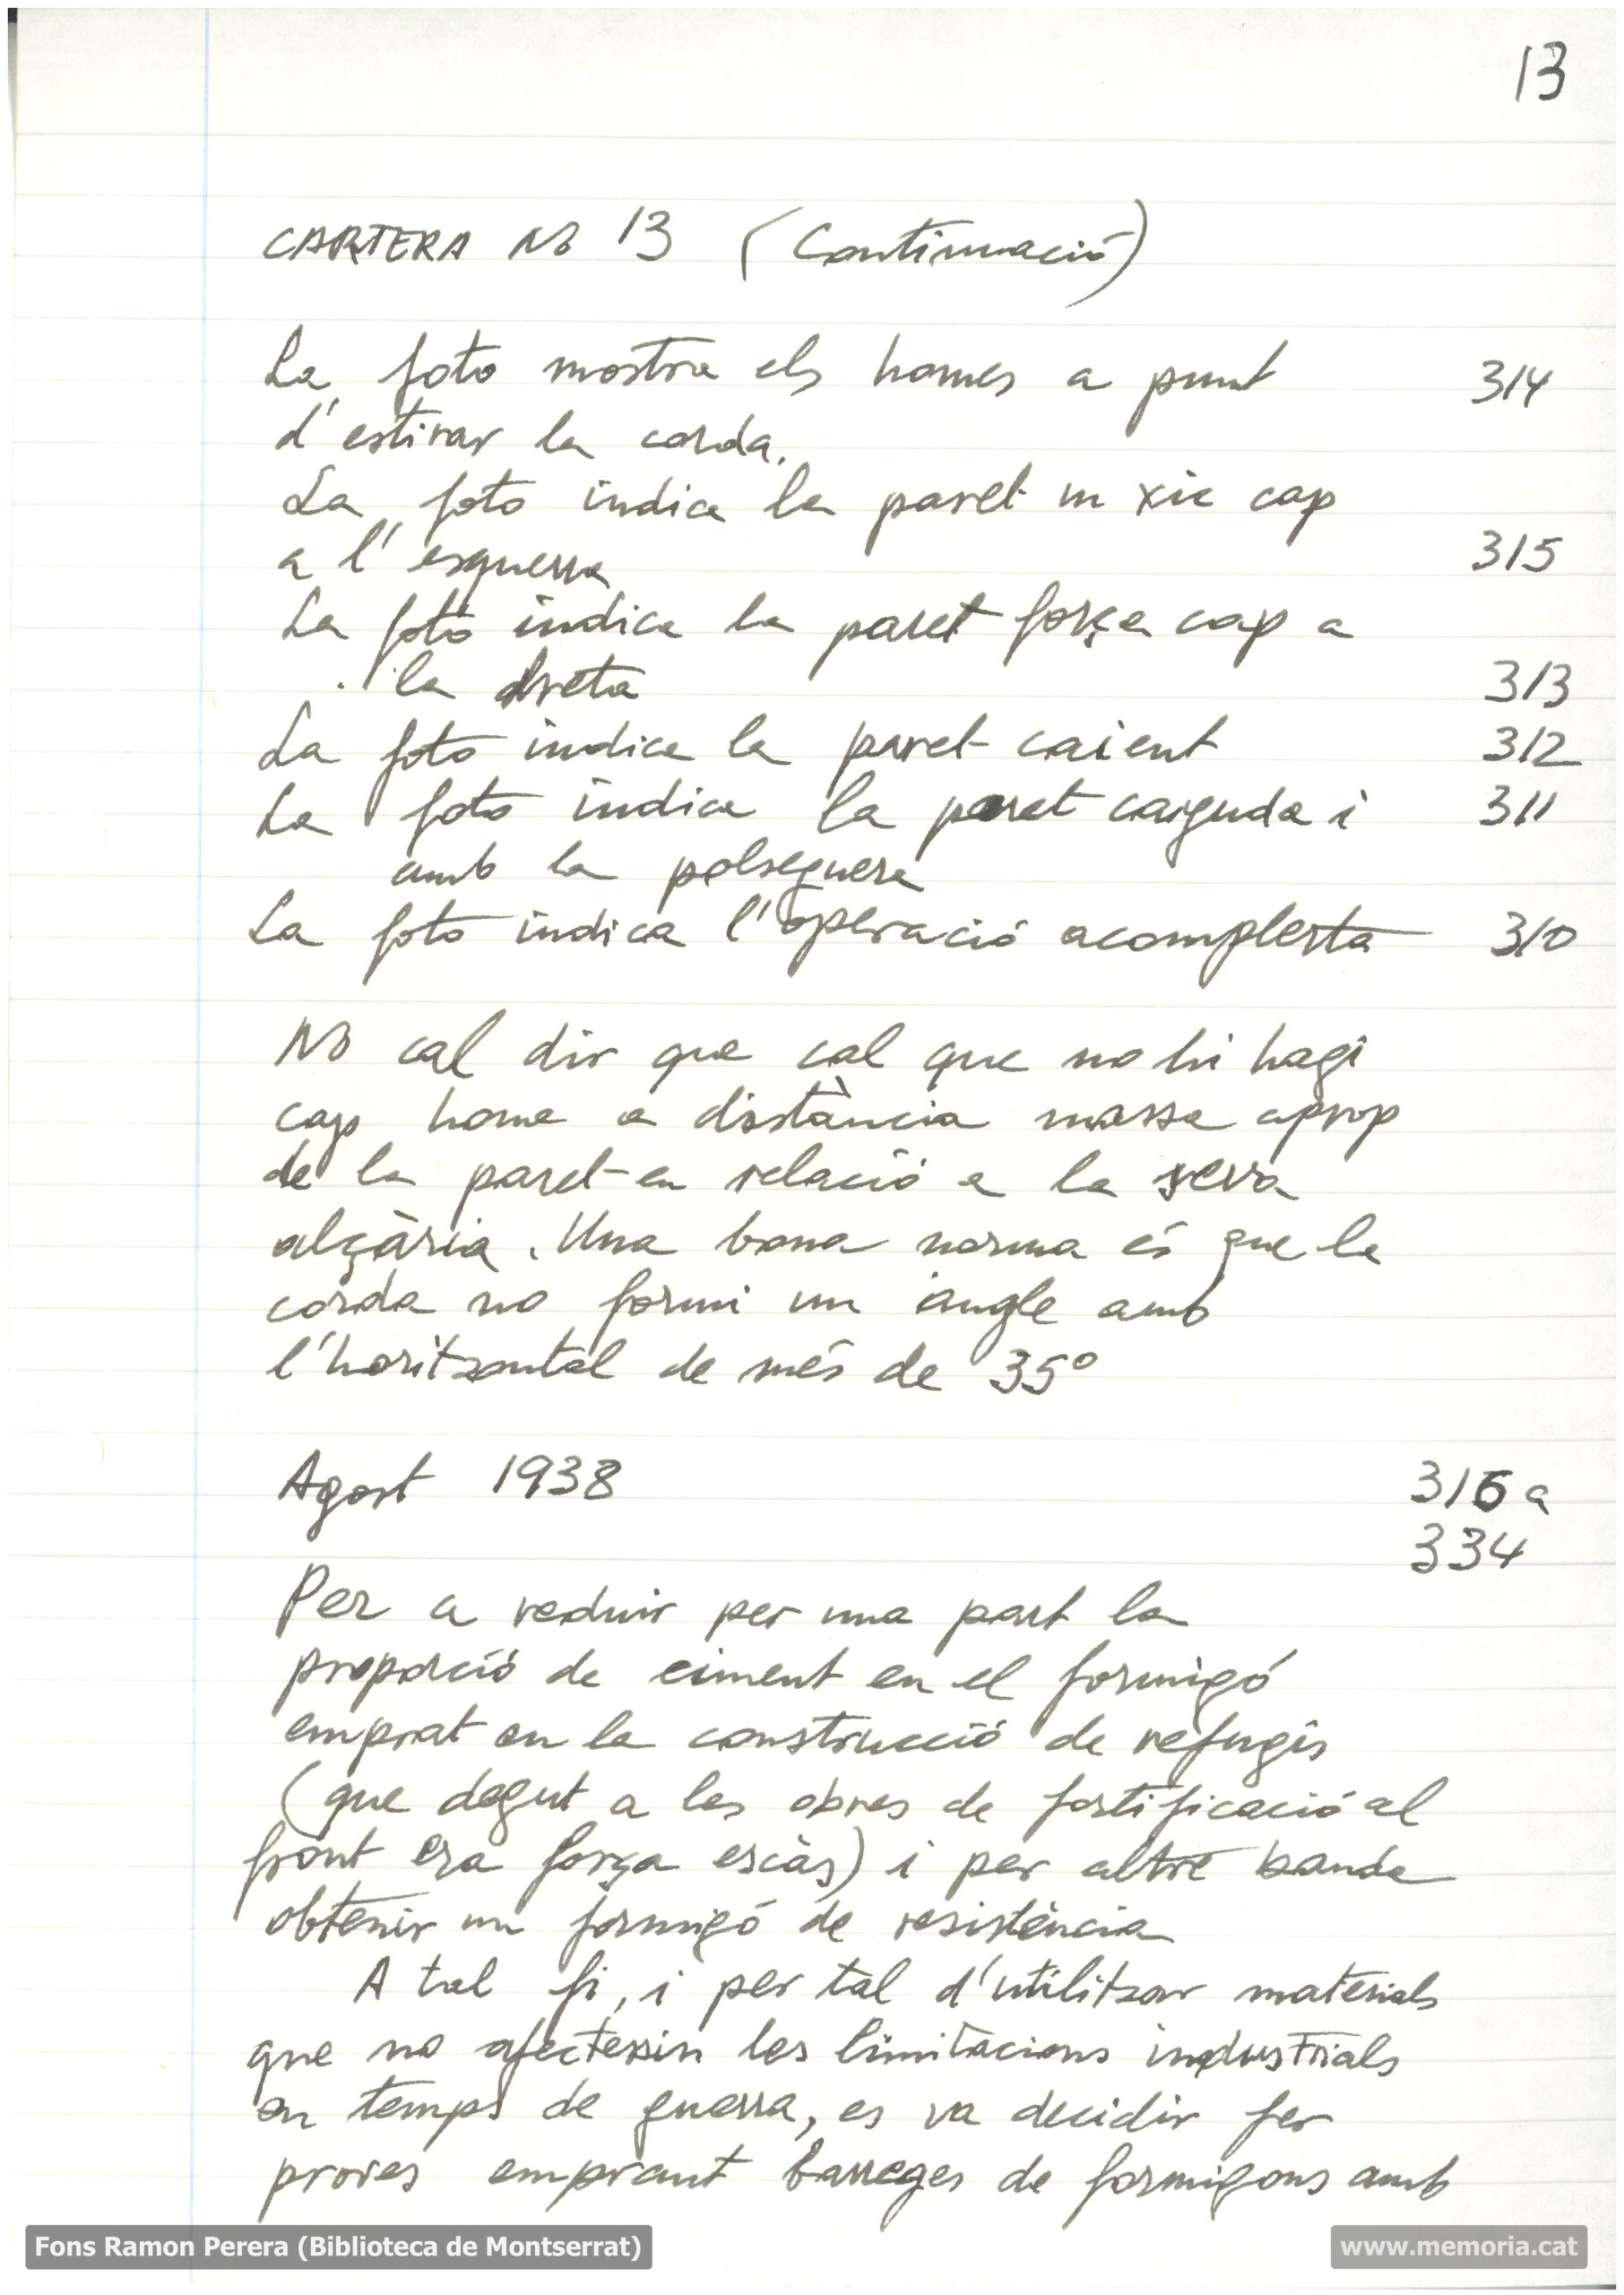 13
CARTERA No 13 (Continuació)
La foto mostra els homes a punt 314
d'estirar la corda.
La foto indica la paret un xic cap
a l'esquerra 315
La foto indica la paret força cap a
la dreta 313
La foto indica la paret caient 312
La foto indica la paret caiguda i 311
amb la polseguera
La foto indica l'operació acomplerta 310
No cal dir que cal que no hi hagi
cap home a distància massa aprop
de la paret en relació a la seva
alçària. Una bona norma és que la
corda no formi un angle amb
l'horitzontal de més de 35º
Agost 1938 316 a
334
Per a reduir per una part la
proporció de ciment en el formigó
emprat en la construcció de refugis
(que degut a les obres de fortificació al
front era força escàs) i per altre banda
obtenir un formigó de resistència
A tal fi, i per tal d'utilitzar materials
que no afectessin les limitacions industrials
en temps de guerra, es va decidir fer
proves emprant barreges de formigons amb
Fons Ramon Perera (Biblioteca de Montserrat)
www.memoria.cat